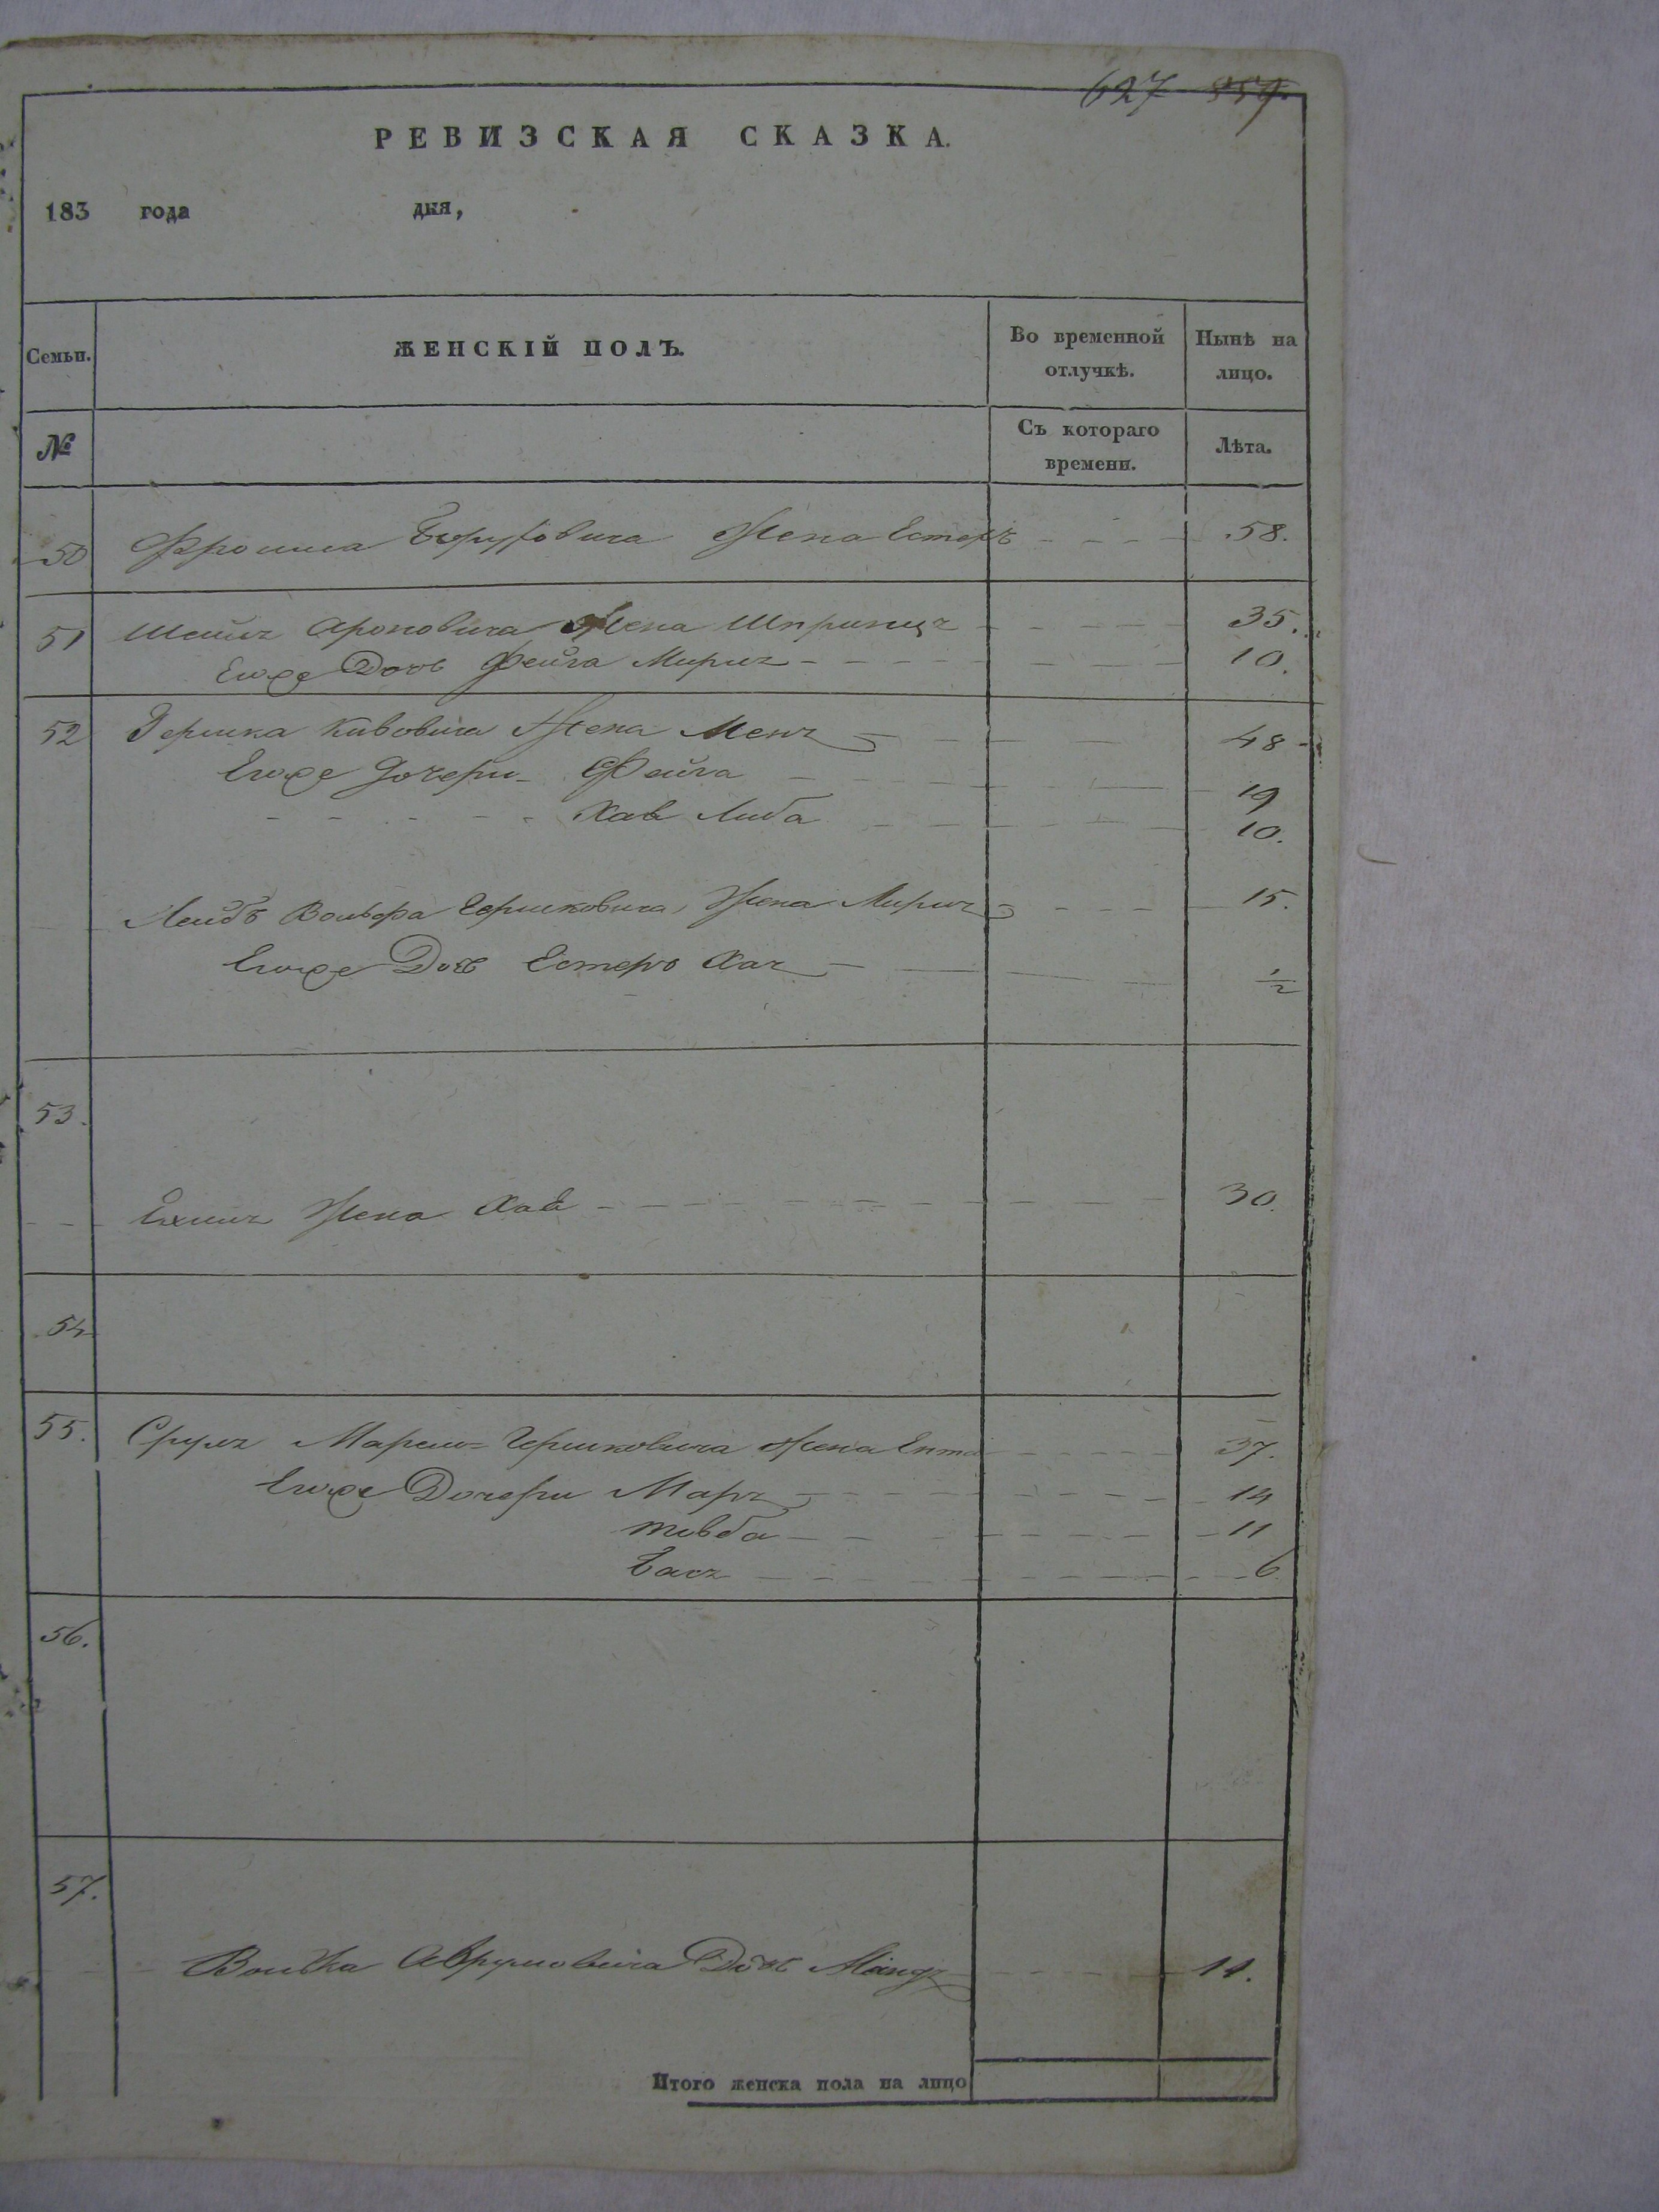 627 859.
РЕВИЗСКАЯ СКАЗКА.
183 года дня,
Семьи. ЖЕНСКІЙ ПОЛЪ. Во временной отлучкѣ. Нынѣ на лицо.
№ Съ котораго времени. Лѣта.
50 Фроима Жена Естеръ 58.
51 Шамы Ароновича Жена Шпринца 35.
Егоже Дочь Фейга Мирия 10.
52 Гершка Кивовича Жена Меня 48
Егоже Дочери Фейга 19
Хая Либа 10.
Лейбъ Вольфа Гершковича Жена Мирия 15.
Егоже Дочь Естеръ Хая 1/2
53.
Жена Хая 30.
54
55. Сруля Гершковича Жена Ента 37.
Егоже Дочери Маря 14
товба 11
Бася 6
56.
57.
Волька Аврумовича Дочь 11.
Итого женска пола на лицо